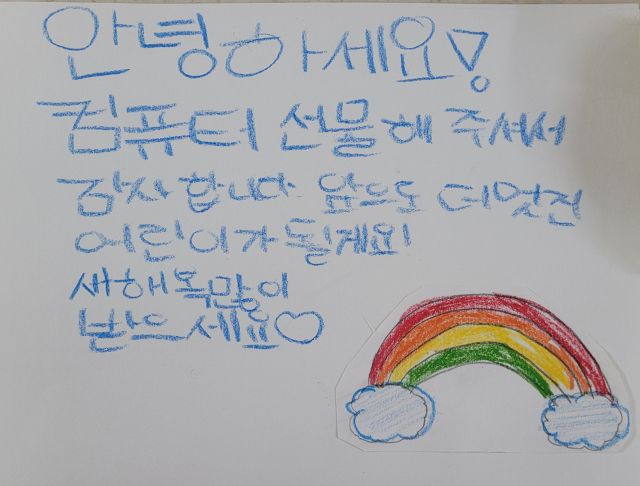 안녕하세요!
컴퓨터 선물해 주셔서
감사합니다 앞으로 더 멋진
어린이가 될게요!
새해복많이
받으세요♡